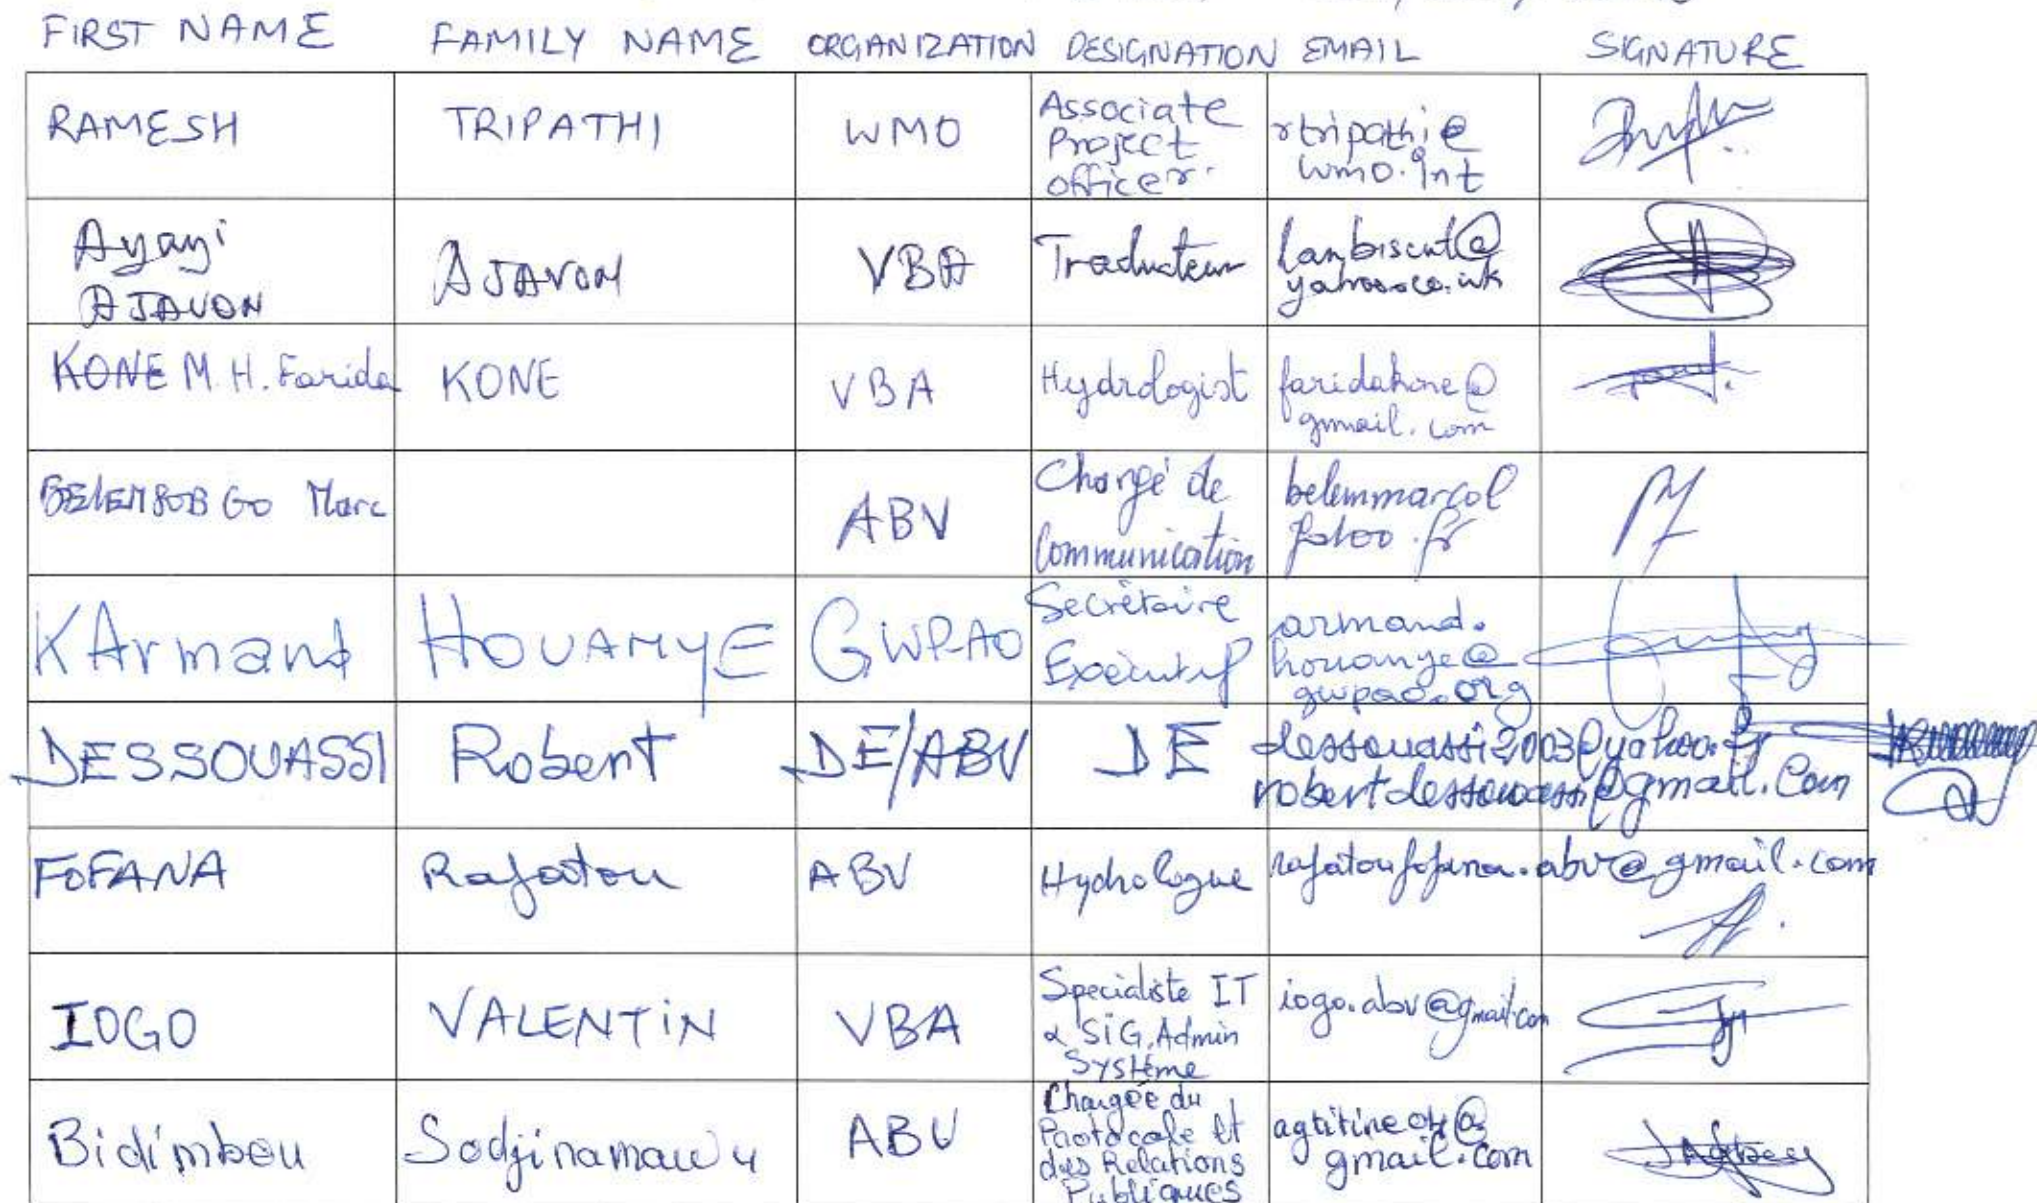 FIRST NAME FAMILY NAME ORGANIZATION DESIGNATION EMAIL SIGNATURE
RAMESH TRIPATHI WMO Associate Project officer. rtripathi@ wmo.int
Ayayi AJAVON AJAVON VBA Traducteur yahoo.co.uk
KONE M. H. Farida KONE VBA Hydrologist faridakone@ gmail.com
Marc ABV Chargé de Communication
KArmand HOUANYE GWPAO Secrétaire Exécutif armand. houanye@ gwpao.org
DESSOUASSI Robert DE/ABV DE dessouassi2003@yahoo.fr
robertdessouassi@gmail.Com
FOFANA Rafatou ABV Hydrologue rafatoufofana.abv@gmail.com
IOGO VALENTiN VBA Specialiste IT & SiG, Admin Système iogo.abv@gmail.com
Bidimbou ABV Chargée du Protocole et des Relations Publiques gmail.com